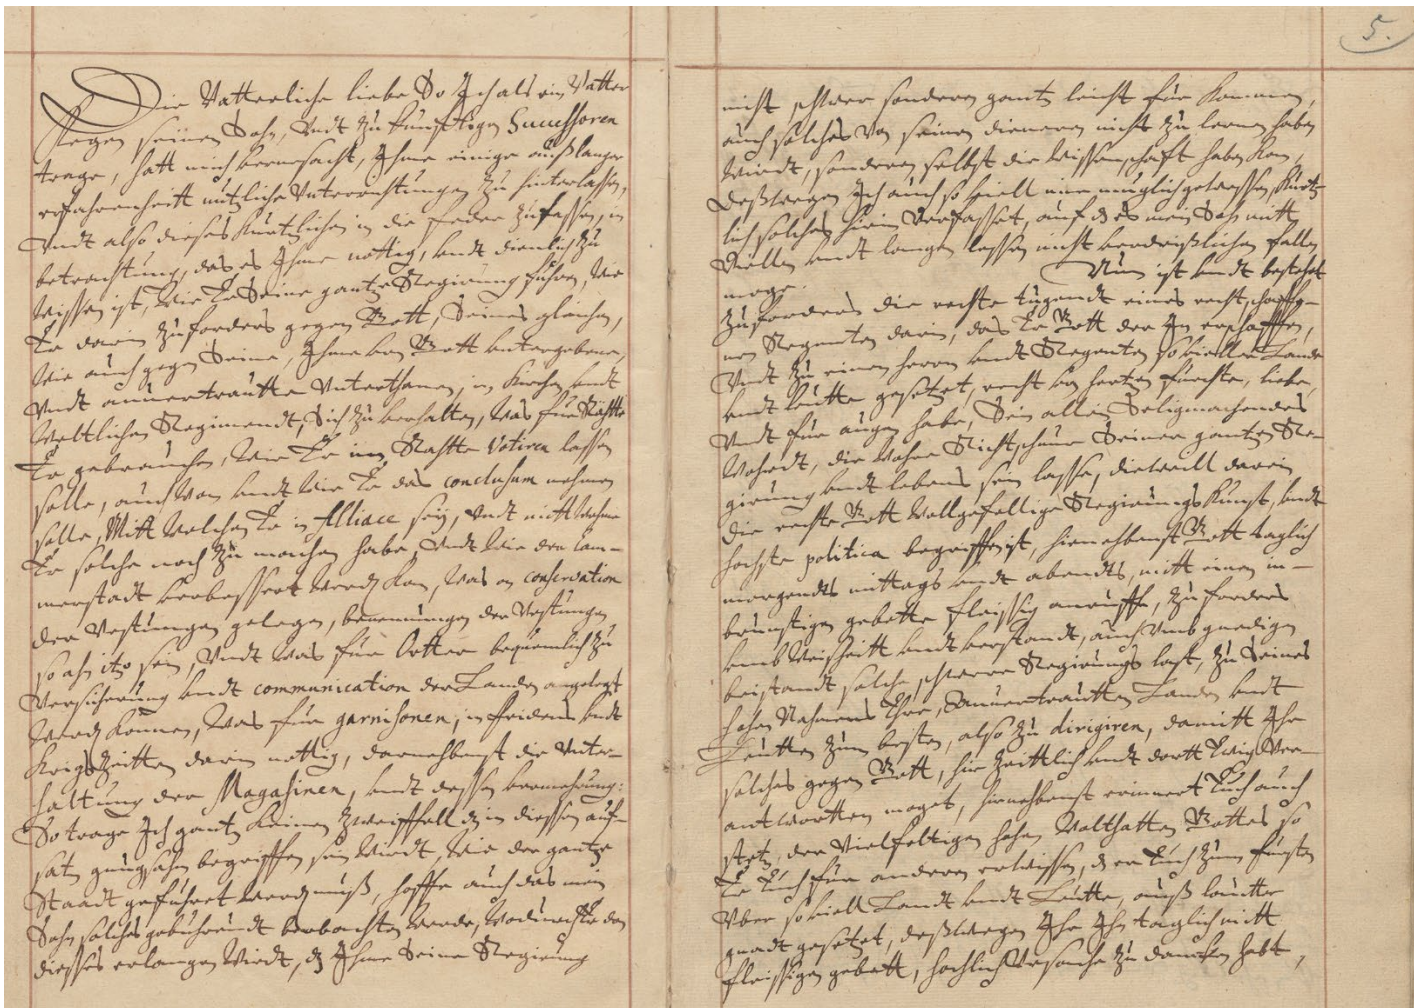 Die Vatterliche liebe So Ich als ein Vatter
Kegen seinen Sohn, Undt zukunfftigen Successoren
trage, hatt mich verursacht, Ihme einige auß langer
erfahrenheitt nutzliche Unterrichtungen zu hinterlassen,
Undt also dieses kurtzlichen in die feder zufassen, in
betrachtung, das es Ihme nottig, undt dienlich zu
wissen ist, wie Er Seine gantze Regirung fuhren, wie
Er darin zuforders gegen Gott, Seines gleichen,
wie auch gegen Seine, Ihme von Gott untergebene,
Undt anvertrautte Unterthanen, in Kirchen undt
Weltlichen Regimendt, Sich zu verhalten, was für Rähtte
Er gebrauchen, wie Er im Rahtte votiren lassen
solle, auch wan undt wie Er das conclusum nehmen
solle, Mitt welchen Er in Alliace seӱ, undt mitt wehme
Er solche noch zu machen habe, Undt wie der Cam-
merstadt verbessert werden kan, was an conservation
der Vestungen gelegen, benennungen der Vestungen,
so ahn itzo sein, Undt was für Ortter bequemlich zu
Versicherung undt communication der Landen angelegt
werden konnen, was für garnisonen, in fridens undt
Krigs Zeitten darin nottig, darnehbenst die Unter-
haltung der Magasinen, undt dessen vermehrung:
So trage Ich gantz keinen Zweiffell dz in diessen auff-
satz gnugsahm begriffen sein wirdt, wie der gantze
Staadt gefuhret werden muß, hoffe auch das mein
Sohn solches gebuhrendt beobachten werde, wodurch Er dan
diesses erlangen wirdt, dz Ihme Seine Regirung
5.
nicht schwer sonderen gantz leicht für kommen,
auch solches von seinen dieneren nicht zu lernen haben
wirdt, sonderen selbst die wissenschafft haben kan,
Deßwegen Ich auch so viell nur muglich gewessen, kurtz-
lich solches hirin verfasset, auf dz es mein Sohn mitt
Viellen undt langen lessen nicht verdrißlichen fallen
moge.
Nun ist undt bestehet
zuforders die rechte tugendt eines rechtschaffe-
nen Regenten darin, das Er Gott der In erschaffen,
Undt zu einen herren undt Regenten so vieller Lande
undt Leutte gesetzet, recht von hertzen furchte, liebe,
Undt für augen habe, Sein allein Seligmachendes
Wohrdt, die wahre Richtschnur Seiner gantzen Re-
girung undt lebens sein lasse, dieweill darin
die rechte Gott wollgefellige Regirungs Kunst, undt
hochste politica begriffen ist, hirnehbenst Gott taglich
morgendts mittags undt abendts, mitt einen in-
brunstigen gebette fleissig anruffe, zuforders
umb Weisheitt undt verstandt, auch umb gnedigen
beistandt solche schwere Regirungs last, zu Seines
hohen Nahmens Ehre, Anvertrautten Landen undt
Leutten zum besten, also zu dirigiren, damitt Ihr
solches gegen Gott, hir Zeittlich undt dortt Ewig Ver-
antwortten moget, hirnehbenst erinnert Euch auch
stetz, der Vielfeltigen hohen Wolthatten Gottes so
Er Euch für anderen erwissen, dz er Euch zum fursten
Uber so viell Landt undt Leutte, auß lautter
gnadt gesetzet, deßwegen Ihr Ihn taglich mitt
fleissigen gebett, hochlich Ursache zu dancken habt,